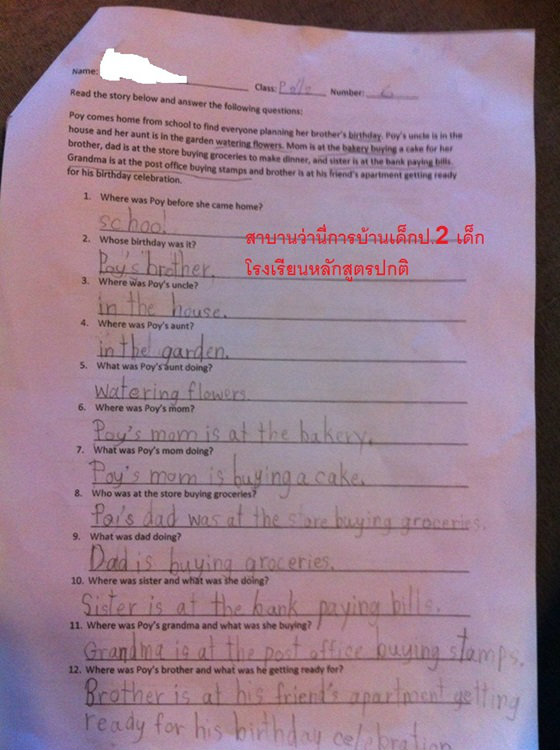 Name:
Class: Number: 6
Read the story below and answer the following questions:
Poy comes home from school to find everyone planning her brother's birthday. Poy's uncle is in the
house and her aunt is in the garden watering flowers. Mom is at the bakery buying a cake for her
brother, dad is at the store buying groceries to make dinner, and sister is at the bank paying bills.
Grandma is at the post office buying stamps and brother is at his friend's apartment getting ready
for his birthday celebration.
1. Where was Poy before she came home?
school
2. Whose birthday was it?
Poy's brother.
3. Where was Poy's uncle?
in the house.
4. Where was Poy's aunt?
in the garden.
5. What was Poy's aunt doing?
watering flowers
6. Where was Poy's mom?
Poy's mom is at the bakery.
7. What was Poy's mom doing?
Poy's mom is buying a cake.
8. Who was at the store buying groceries?
Poi's dad was at the store buying groceries.
9. What was dad doing?
Dad is buying groceries.
10. Where was sister and what was she doing?
Sister is at the bank paying bills.
11. Where was Poy's grandma and what was she buying?
Grandma is at the post office buying stamps.
12. Where was Poy's brother and what was he getting ready for?
Brother is at his friend's apartment getting
ready for his birthday celebration
สาบานว่านี่การบ้านเด็กป.2 เด็ก
โรงเรียนหลักสูตรปกติ